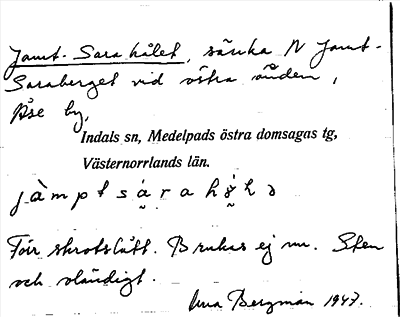 Jamt-Sara hålet, sänka N Jamt-
Saraberget vid östra änden,
Åse by,
Indals sn, Medelpads östra domsagas tg,
Västernorrlands län.
jàmptsárahó̤ḷə
För skrotslått. Brukas ej nu. Sten
och oländigt.
Bergman 1947.